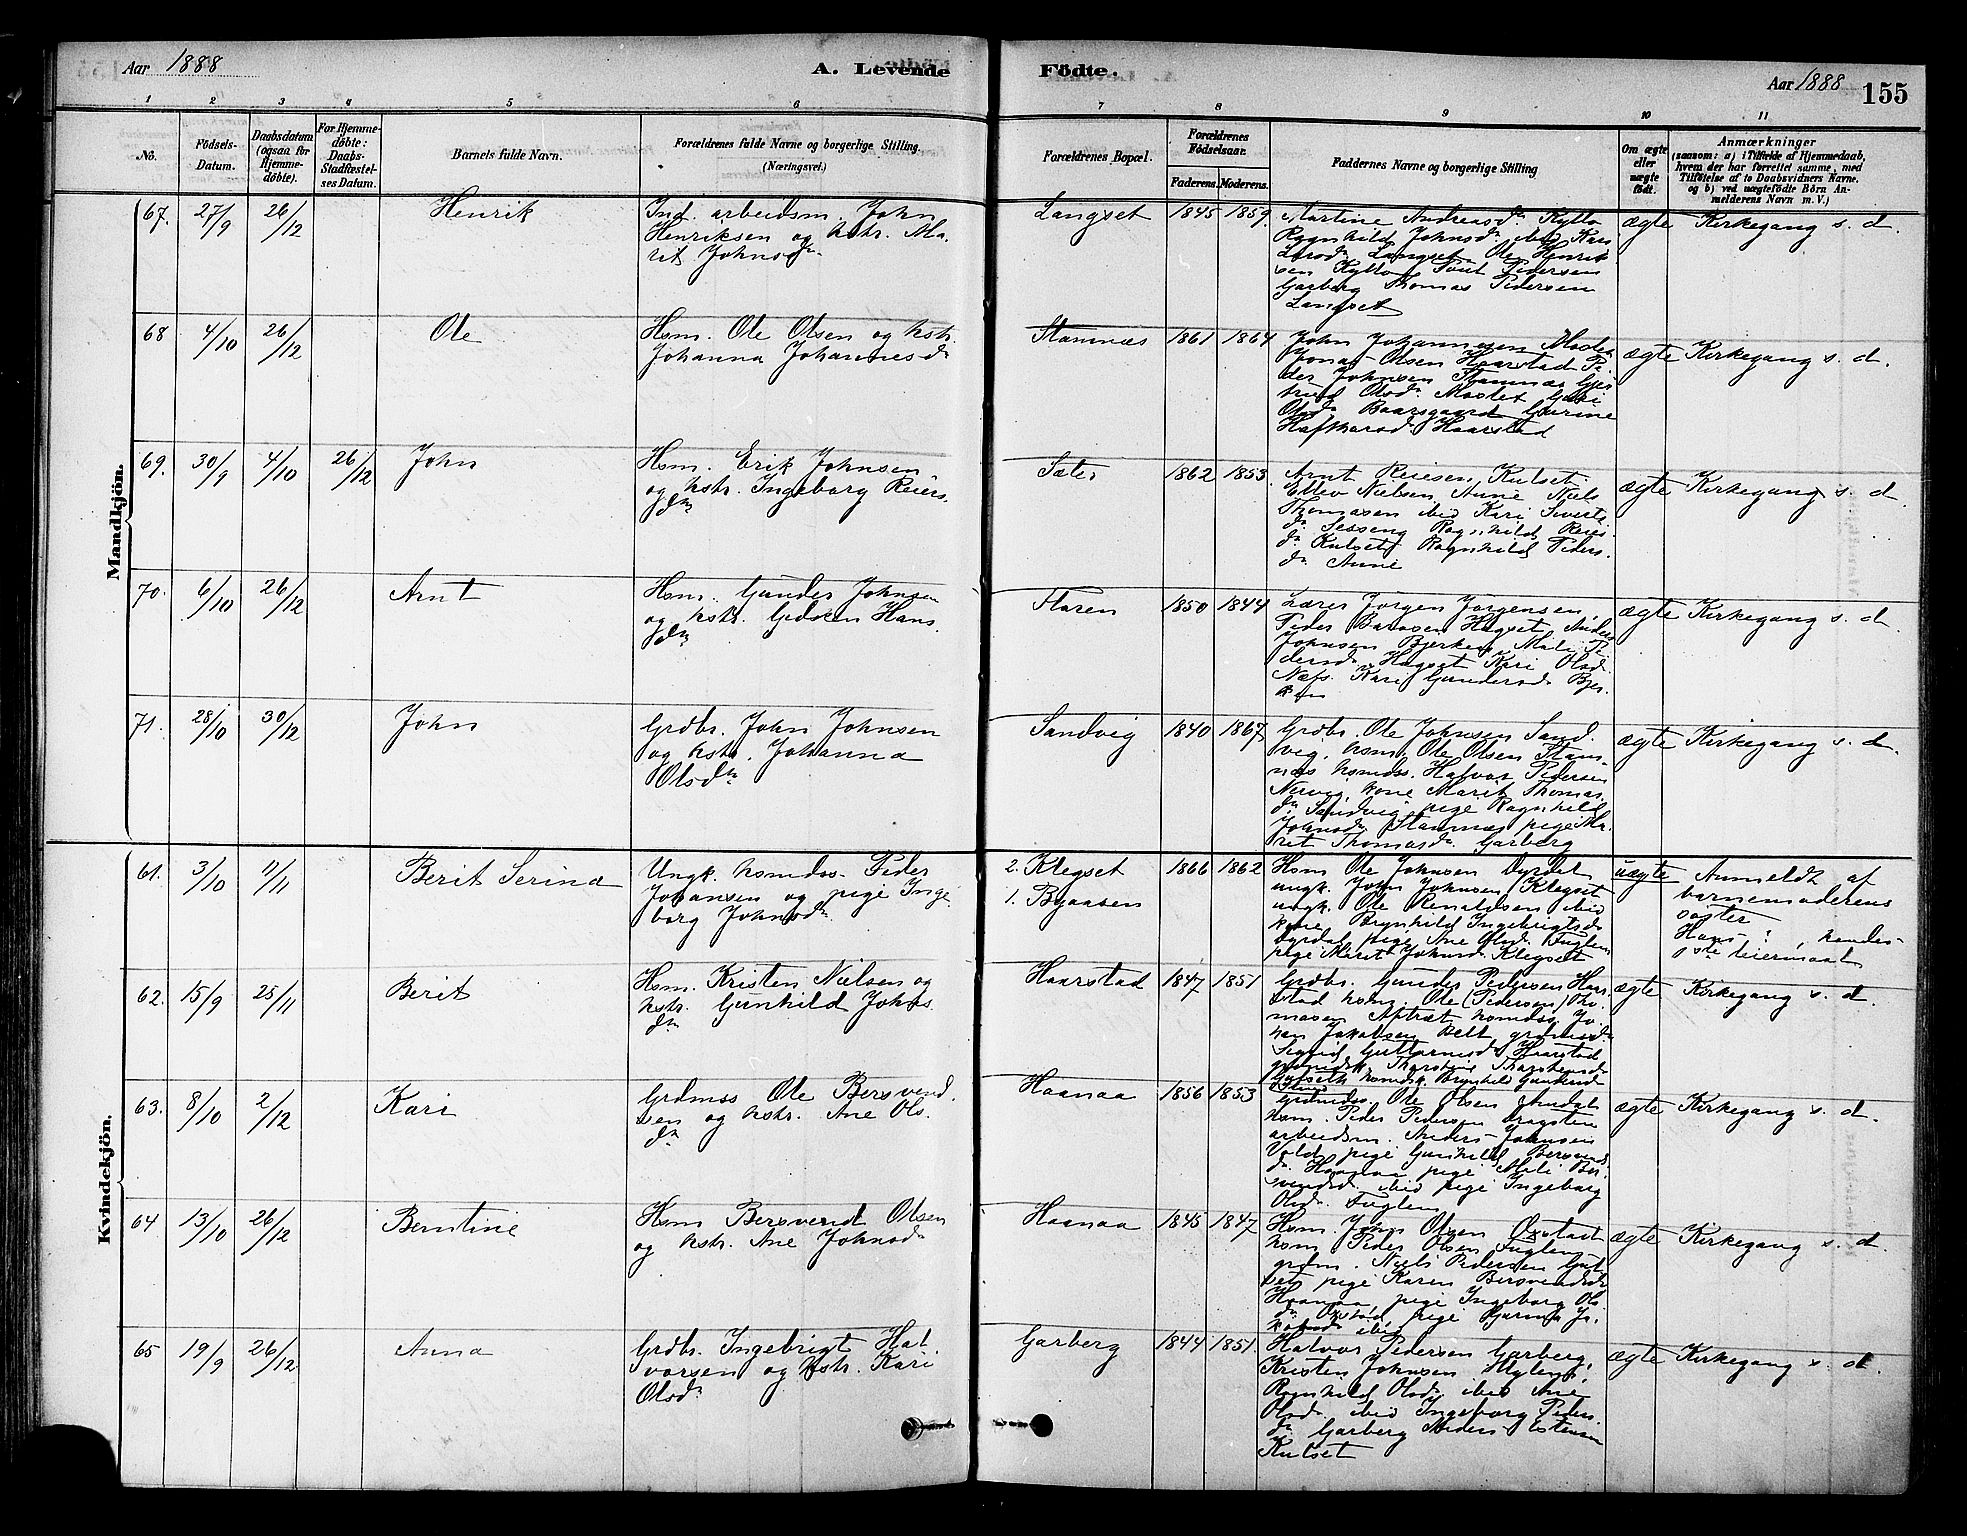 Aar 1888
A. Levende
Födte.
Aar 1888
155
1 2 3 4 5 6 7 8 9 10 11
No.
Födsels-
Datum.
Daabsdatum
(ogsaa for
Hjemme-
döbte).
For Hjemme-
döbte:
Daabs-
Stadfæstel-
ses Datum.
Barnets fulde Navn.
Forældrenes fulde Navne og borgerlige Stilling
(Næringsvei.)
Forældrenes Bopæl.
Forældrenes
Födselsaar.
Faderens. Moderens.
Faddernes Navne og borgerlige Stilling
Om ægte
eller
uægte
födt.
Anmærkninger
(saasom: a) i Tilfælde af Hjemmedaab,
hvem der har forrettet samme, med
Tilföielse af to Daabsvidners Navne.
og b) ved uægtefödte Börn An-
melderens Navn m. V.)
Mandkjön.
67. 27/9 26/12 Henrik
Ind. arbeidsm. John
Henriksen og hstr. Ma-
rit Johnsdr
Langset 1845 1859.
Martine Andreasdr Kyllo
Ragnhild Johnsdr ibid Kari
Larsdr Langset Ole Henrik
sen Kyllo Pedersen
Garberg Thomas Pedersen
Langset
ægte Kirkegang s. d.
68 4/10 26/12 Ole
Hsm. Ole Olsen og hstr.
Johanna Johannesdr
Stamnæs 1861 1864
John Johannesen Moslet
Jonas Olsen Haarstad Pe
der Johnsen Stamnæs Gjer
trud Olsdr Moslet Guri
Olsdr Baarsgaard Gurine
Haarstad
ægte Kirkegang s. d.
69. 30/9 4/10 26/12 John
Hsm. Erik Johnsen
og hstr. Ingeborg Reiers
dr
Sæter 1862 1853.
Arnt Reiersen Kulset.
Ellev Nielsen Aune Niels
Thomasen ibid Kari Siverts
dr Sesseng Ragnhild Reiers
dr Kulset Ragnhild Peders.
dr Aune
ægte Kirkegang s. d
70. 6/10 26/12 Arnt
Hsm. Gunder Johnsen
og hstr. Gjdsken Hans.
dr
Staren 1850 1844
Lærer Jörgen Jörgensen
Peder Hagset Anders
Johnsen Bjerken Mali Pe
dersdr Hagset Kari Olsdr
Næss. Kari Gundersdr Bjer
ken
ægte Kirkegang s. d.
71. 28/10 30/12 John
Grdbr. John Johnsen
og hstr. Johanna
Olsdr
Sandvig 1840 1867
Grdbr. Ole Johnsen Sand
vig, hsm. Ole Olsen Stam-
næs hsmdss. Halvor Pedersen
Nervig, kone Marit Thomas
dr Sandvig pige Ragnhild
Johnsdr Stamnæs pige Ma-
rit Thomasdr Garberg
ægte Kirkegang s. d.
Kvindekjön.
61. 3/10 11/11 Berit Serina
Ungk. hsmdss Peder
Johansen og pige Inge
borg Johnsdr
2. Klegset
1. Byaasen
1866 1862
Hsm Ole Johnsen Dyrdal
ungk. John Johnsen Klegset
ungk. Ole ibid
kone Brynhild Ingebrigtsdr
Dyrdal pige Ane Olsdr Fuglem
pige Marit Johnsdr Klegset
uægte Anmeldt af
barnemoderens
søster
Hans : , hendes
leiermaal
62. 15/9 25/11 Berit
Hsm. Kristen Nielsen og
hstr. Gunhild Johns
dr
Haarstad 1847 1851
Grdbr. Gunder Pedersen Haar
stad hsm. Ole (Pedersen) Tho
masen Aftræt hsmdss Jo
han Jakobsen
Sigrid Guttormsdr Haarstad
hsmdr. Brynhild
ægte Kirkegang s. d.
63. 8/10 2/12 Kari
Grdmss Ole Bersvend
sen og hstr. Ane Ols.
dr
Haanaa 1856 1853
Grdmss. Ole Olsen
hsm. Peder Pedersen Dragsten
arbeidsm. Anders Johnsen
Vold pige Gunhild Bersvends
dr Haanaa pige Mali Ber
svendsdr ibid pige Ingeborg
Olsdr Fuglem
ægte Kirkegang s. d.
64 13/10 26/12 Berntine
Hsm Bersvend Olsen
og hstr. Ane Johnsdr
Haanaa 1845 1847
Hsm. John Olsen Oxstad
hsm. Peder Olsen Fuglem
grdm. Niels Pedersen Gul
set pige Karen Bersvendsdr
Haanaa pige Ingeborg Ols
dr Oxstad pige Ja-
kobsdr ibid
ægte Kirkegang s. d.
65 19/9 26/12 Anna
Grdbr. Ingebrigt Hal
vorsen og hstr. Kari
Olsdr
Garberg 1844 1851.
Halvor Pedersen Garberg,
Kristen Johnsen
Ragnhild Olsdr ibid Ane
Olsdr ibid Ingeborg Peders.
dr Garberg Peder Estensen
Kulset
ægte Kirkegang s. d.